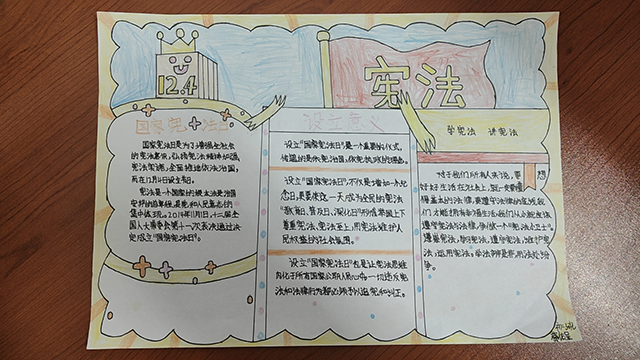 12.4
宪法
学宪法 讲宪法
国家宪法日
国家宪法日是为了增强全社会
的宪法意识,弘扬宪法精神,加强
宪法实施,全面推进依法治国,
而在12月4日设立节日。
宪法是一个国家的根本法是治国
安邦的总章程,是党和人民意志的
集中体现。2014年11月1日,十二届
全国人大常委会第十一次会议通过决
定成立“国家宪法日”。
设立意义
设立“国家宪法日”是一个重要的仪式,
传递的是依宪治国,依宪执政的理念。
设立“国家宪法日”,不仅是增加一个纪
念日,更要使这一天成为全民的宪法
“教育日、普及日、深化日”形成举国上下
尊重宪法、宪法至上,用宪法维护人
民权益的社会氛围。
设立“国家宪法日”也是让宪法思维
内化于所有国家公职人员心中。一切违反宪
法和法律行为都必须予以追究和纠正。
对于我们所有人来说,要想
好好生活在社会上,就一定要懂
得基本的法律,
遵守宪法与法律,争做一个“宪法小卫士”。
遵崇宪法,学习宪法,遵守宪法,维护宪
法,运用宪法。